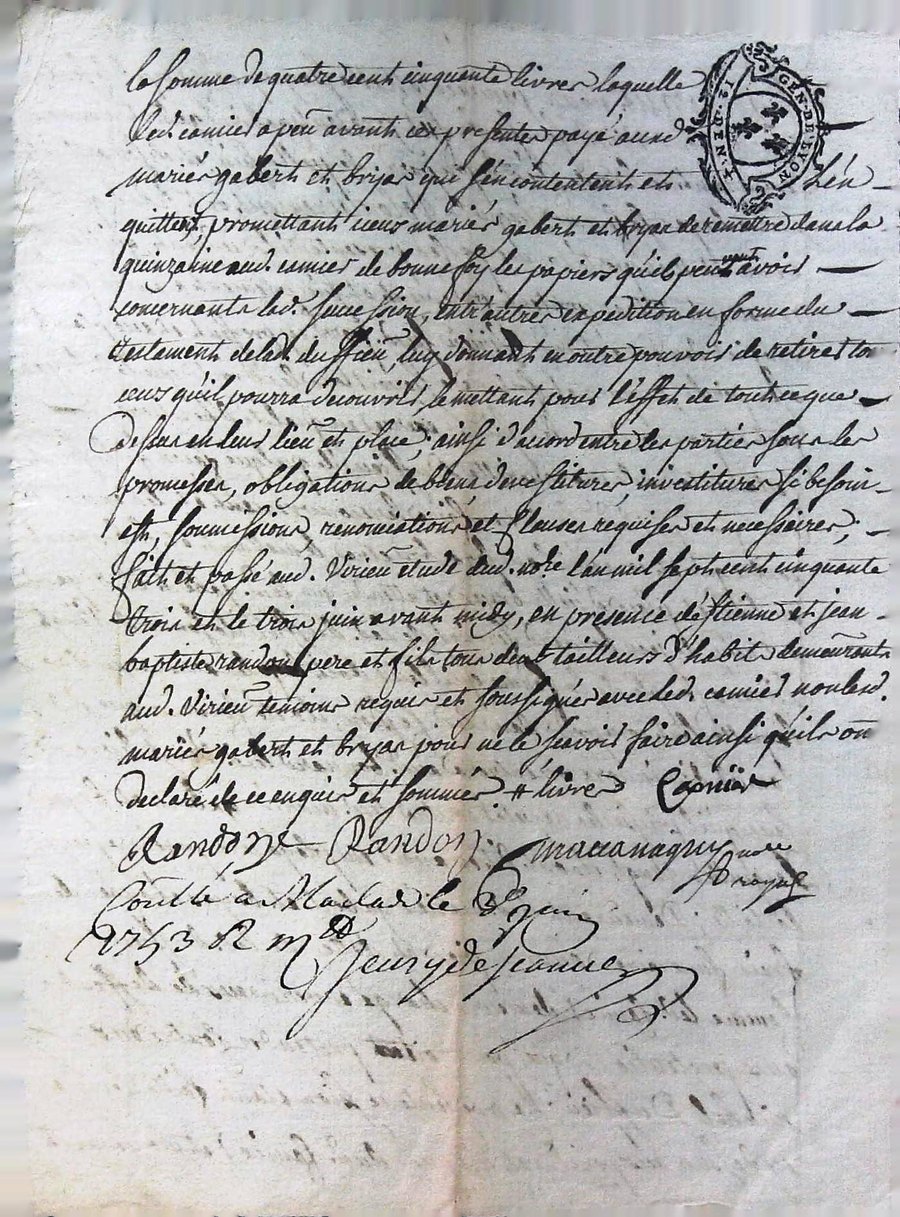 la somme de quatre cent cinquante livres laquelle
led. camier a peu avant ces presentes payé aud
mariés gabert et bryas qui s'en contentent et l'en
quittent, promettant iceux mariés gabert et bryas de remettre dans la
quinzaine aud. camier de bonne foy les papiers qu'il peuvent avoir
concernants lad. succession, entr'autres expedition en forme du
testament de led. du , luy donnant en outre pouvoir de retirer to
ceux qu'il pourra découvrir, le mettant pour l'effet de tout ce que
dessus en leur lieu et place; ainsi d'acord entre les parties sous les
promesses, obligations de biens devestitures, investitures si besoin
est, soumissions, renonciations et clauses requises et necessaires;
fait et passé aud. Virieu etude dud. nore. l'an mil sept cent cinquante
trois et le trois juin avant midy, en presence d'étienne et jean
baptiste randon pere et fils tous deux tailleurs d'habits demeurants
aud. Virieu temoins requis et soussignés avec led. camier non lesd.
mariés gabert et bryas pour ne le scavoir faire ainsi qu'ils on
declaré de ce enquis et sommés # livres Camier
Randon Randon nore
royal
Conllé a Maclas le juin
1753 R
GEN. DE LYON